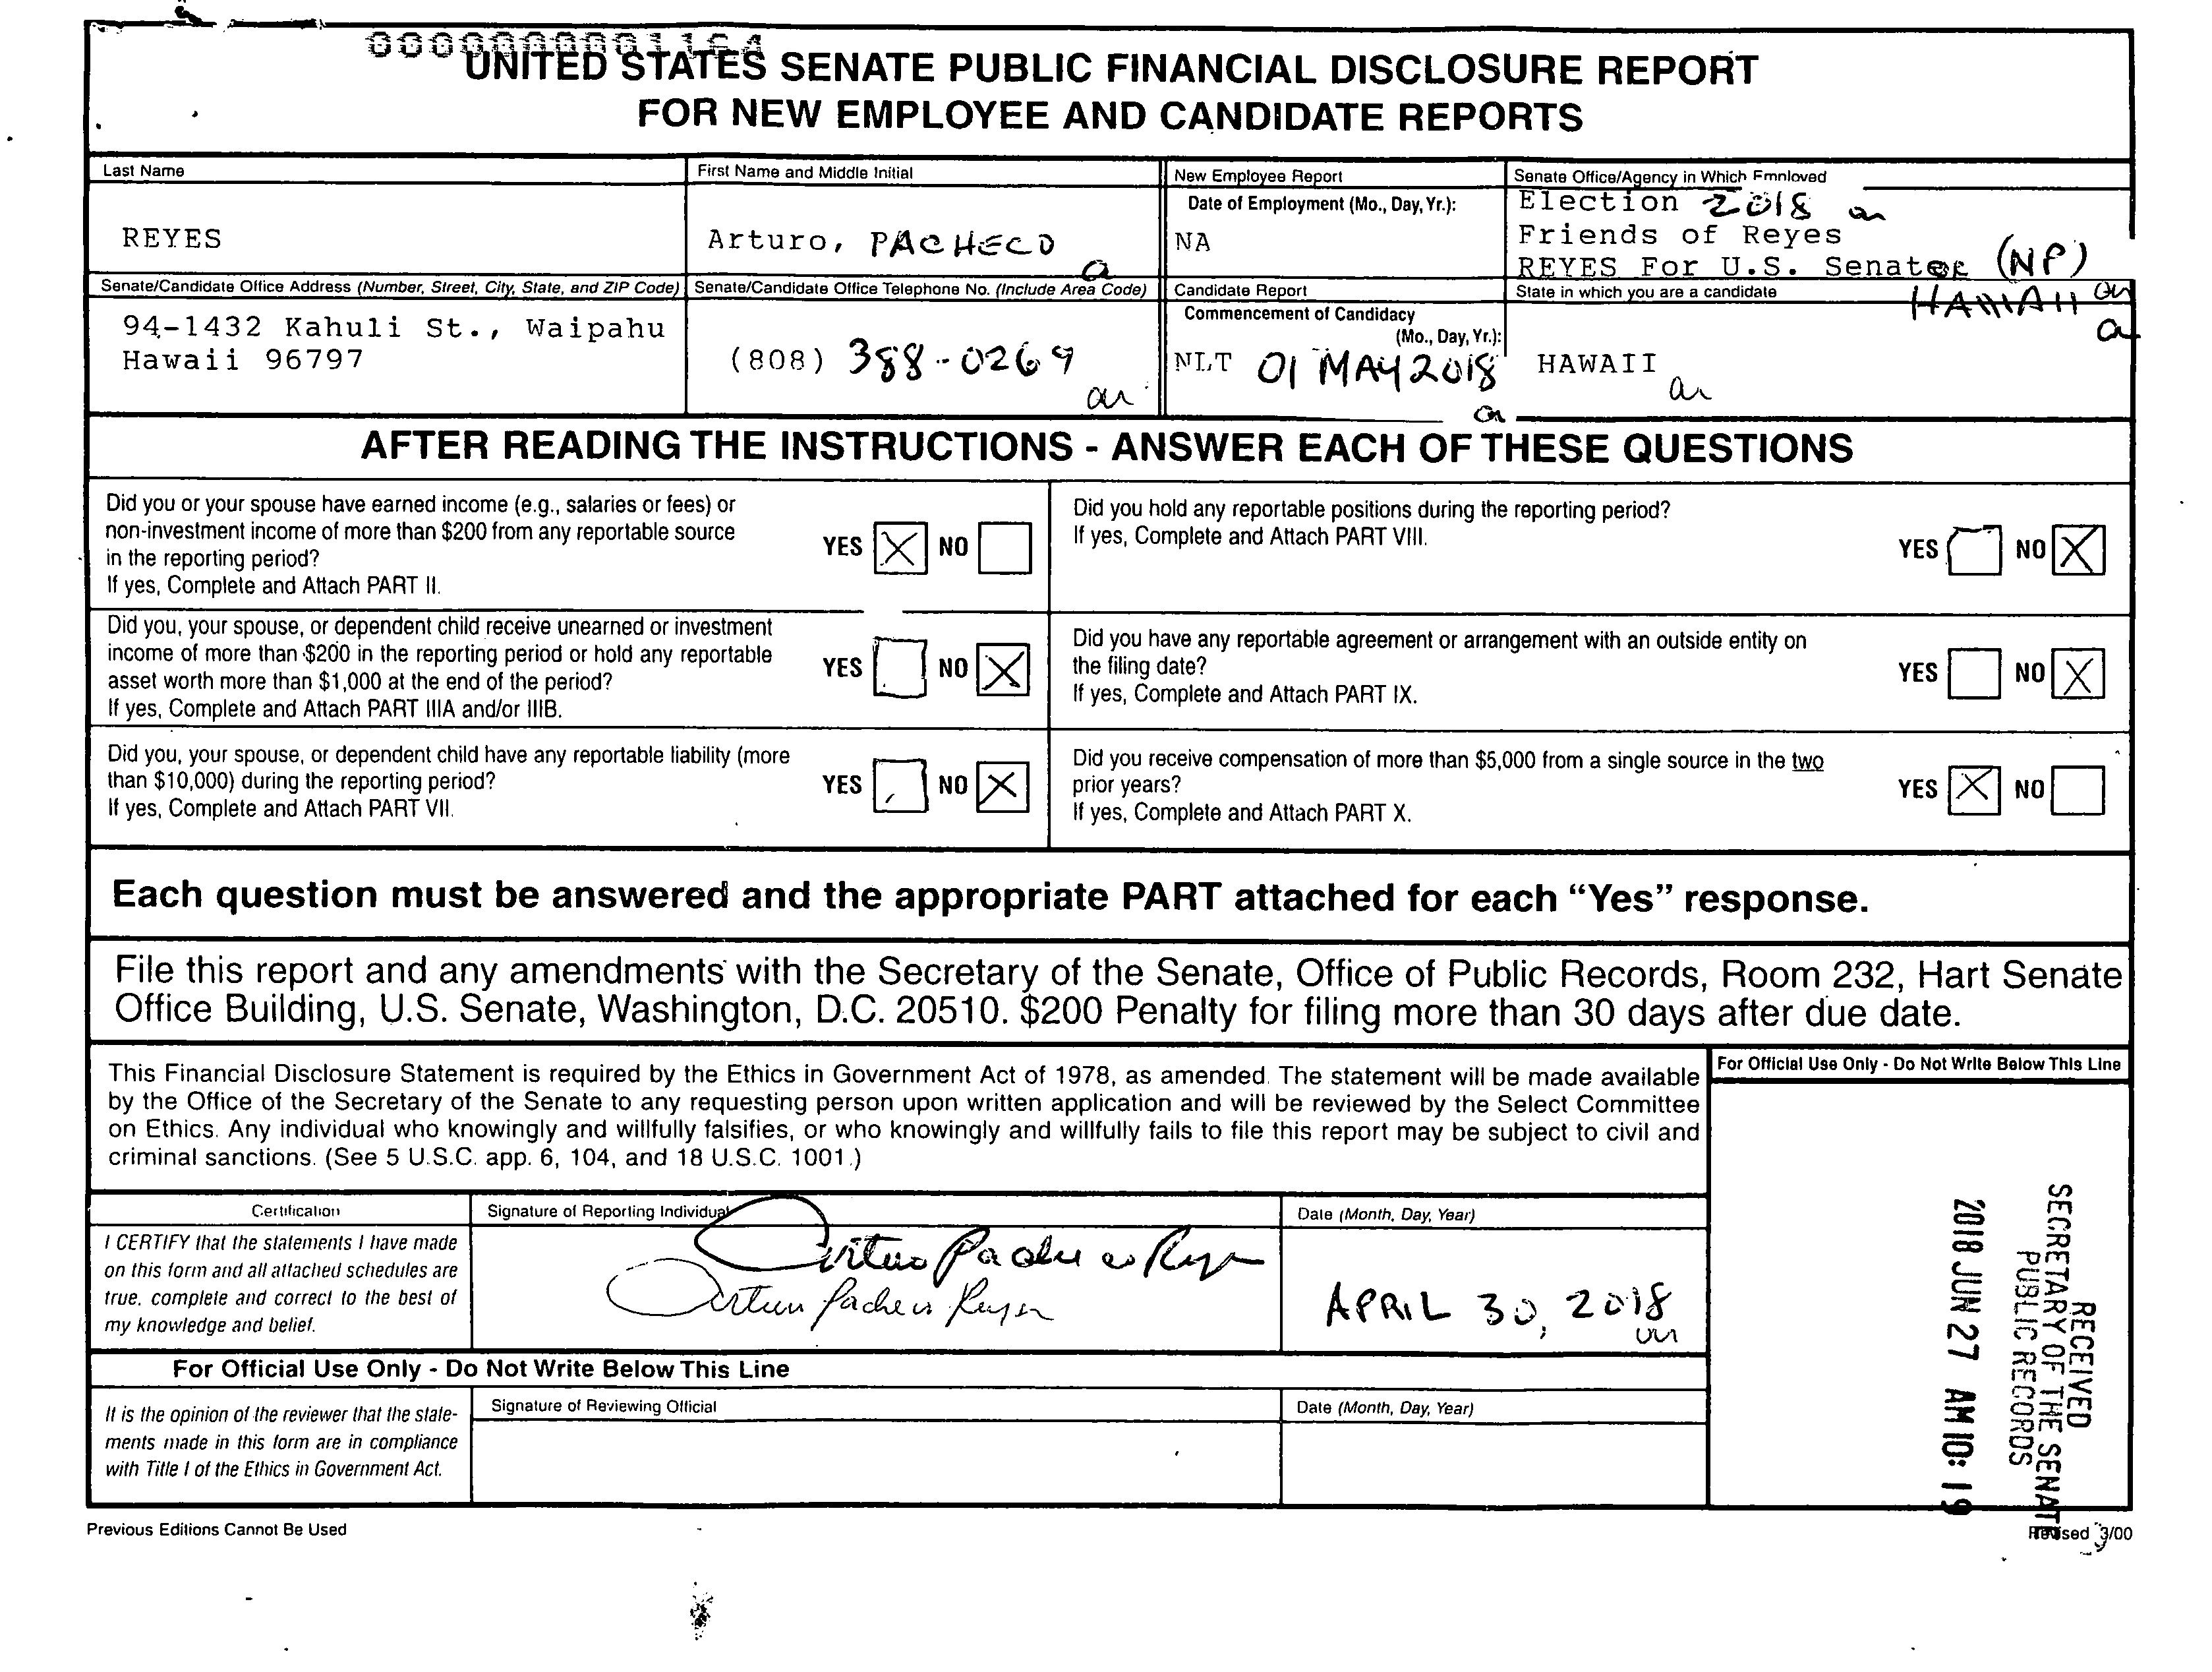 0000000001164
UNITED STATES SENATE PUBLIC FINANCIAL DISCLOSURE REPORT
FOR NEW EMPLOYEE AND CANDIDATE REPORTS
Last Name
REYES
First Name and Middle Initial
Arturo, PACHECO
New Employee Report
Date of Employment (Mo., Day, Yr.):
NA
Senate Office/Agency in Which Employed
Election 2018
Friends of Reyes
REYES For U.S. Senate (NP)
HAWAII
Senate/Candidate Office Address (Number, Street, City, State, and ZIP Code)
94-1432 Kahuli St., Waipahu
Hawaii 96797
Senate/Candidate Office Telephone No. (Include Area Code)
(808) 388-0269
ar
Candidate Report
Commencement of Candidacy
(Mo., Day, Yr.):
NLT 01 MAY 2018
State in which you are a candidate
HAWAII
ar
AFTER READING THE INSTRUCTIONS - ANSWER EACH OF THESE QUESTIONS
Did you or your spouse have earned income (e.g., salaries or fees) or
non-investment income of more than $200 from any reportable source
in the reporting period?
If yes, Complete and Attach PART II.
YES X NO
Did you, your spouse, or dependent child receive unearned or investment
income of more than $200 in the reporting period or hold any reportable
asset worth more than $1,000 at the end of the period?
If yes, Complete and Attach PART IIIA and/or IIIB.
YES NO X
Did you, your spouse, or dependent child have any reportable liability (more
than $10,000) during the reporting period?
If yes, Complete and Attach PART VII.
YES NO X
Did you hold any reportable positions during the reporting period?
If yes, Complete and Attach PART VIII.
YES NO X
Did you have any reportable agreement or arrangement with an outside entity on
the filing date?
If yes, Complete and Attach PART IX.
YES NO X
Did you receive compensation of more than $5,000 from a single source in the two
prior years?
If yes, Complete and Attach PART X.
YES X NO
Each question must be answered and the appropriate PART attached for each “Yes” response.
File this report and any amendments with the Secretary of the Senate, Office of Public Records, Room 232, Hart Senate
Office Building, U.S. Senate, Washington, D.C. 20510. $200 Penalty for filing more than 30 days after due date.
This Financial Disclosure Statement is required by the Ethics in Government Act of 1978, as amended. The statement will be made available
by the Office of the Secretary of the Senate to any requesting person upon written application and will be reviewed by the Select Committee
on Ethics. Any individual who knowingly and willfully falsifies, or who knowingly and willfully fails to file this report may be subject to civil and
criminal sanctions. (See 5 U.S.C. app. 6, 104, and 18 U.S.C. 1001.)
For Official Use Only - Do Not Write Below This Line
RECEIVED
SECRETARY OF THE SENATE
PUBLIC RECORDS
2018 JUN 27 AM 10: 19
Certification
I CERTIFY that the statements I have made
on this form and all attached schedules are
true, complete and correct to the best of
my knowledge and belief.
Signature of Reporting Individual
Arturo Pacheco Reyes
Arturo Pacheco Reyes
Date (Month, Day, Year)
APRIL 30, 2018
For Official Use Only - Do Not Write Below This Line
It is the opinion of the reviewer that the state-
ments made in this form are in compliance
with Title I of the Ethics in Government Act.
Signature of Reviewing Official
Date (Month, Day, Year)
Previous Editions Cannot Be Used
Revised 3/00